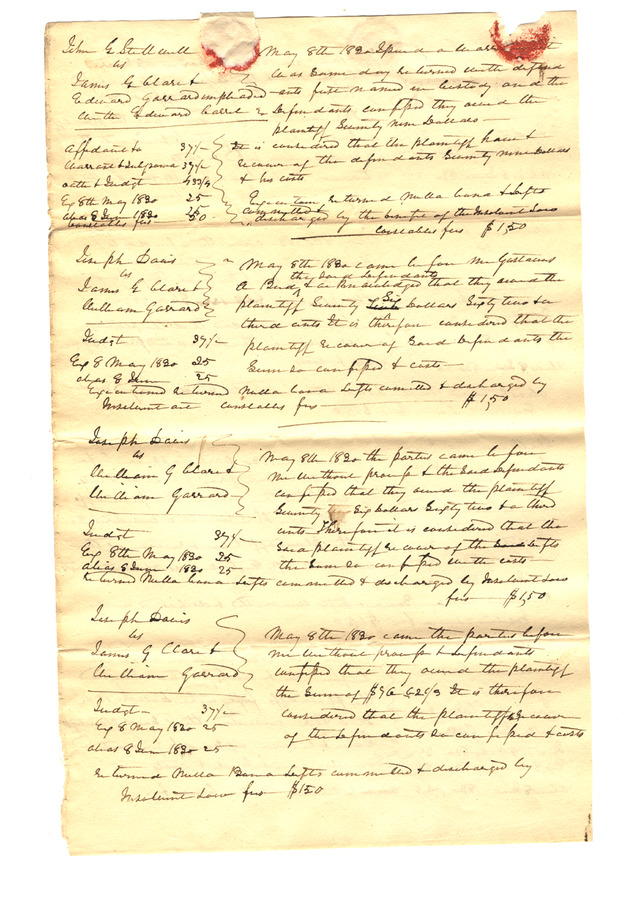 John G Stillwell
vs
James G Claret
Edward Garrard impleaded
with Edward Carrel
May 8th 1820 Issued a
was Same day returned with defend
ants first named in Custody and the
Defendants confessed they owed the
plaintiff Seventy nine Dollars
Affidavit 37/-
Warrant & Subpoena 37/-
oath & Judgt
Ex 8th May 1820 25
alias 8 June 1820 25
Constables fees 50
It is considered that the plaintiff have &
recover of the defendants Seventy nine Dollars
& his costs
Execution returned Nulla bona & Defts
committed & discharged by the benefit of the Insolvent Laws
Constables fees $1,50
Joseph Davis
vs
James G Claret
William Garrard
May 8th 1820 came before me Gustavus
A Bird the Said Defendants
& acknowledged that they owed the
plaintiff Seventy Six Dollars Sixty two & a
third cents It is therefore considered that the
plaintiff recover of Said Defendants the
Sum so confessed & costs
Judgt 37/-
Ex 8 May 1820 25
alias 8 June 25
Executioned returned Nulla bona Defts comitted & discharged by
Insolvent act constables fees $1,50
Joseph Davis
vs
William G Claret
William Garrard
May 8th 1820 the parties came before
me without process & the Said Defendants
confessed that they owed the plaintiff
Seventy Six Dollars Sixty two & a third
cents Therefore it is considered that the
Said plaintiff recover of the Defts
the Sum so confessed with costs
Judgt 37/-
Ex 8th May 1820 25
alias 8 June 1820 25
returned Nulla bona Defts committed & discharged by Insolvent Laws
fees $1,50
Joseph Davis
vs
James G Claret
William Garrard
May 8th 1820 came the parties before
me without process & Defendants
confessed that they owed the plaintiff
the Sum of $76 It is therefore
considered that the plaintiff recover
of the Defendants So confessed & costs
Judgt 37/-
Ex 8 May 1820 25
alias 8 June 1820 25
returned Nulla Bona Defts committed & discharged by
Insolvent Law fees $150